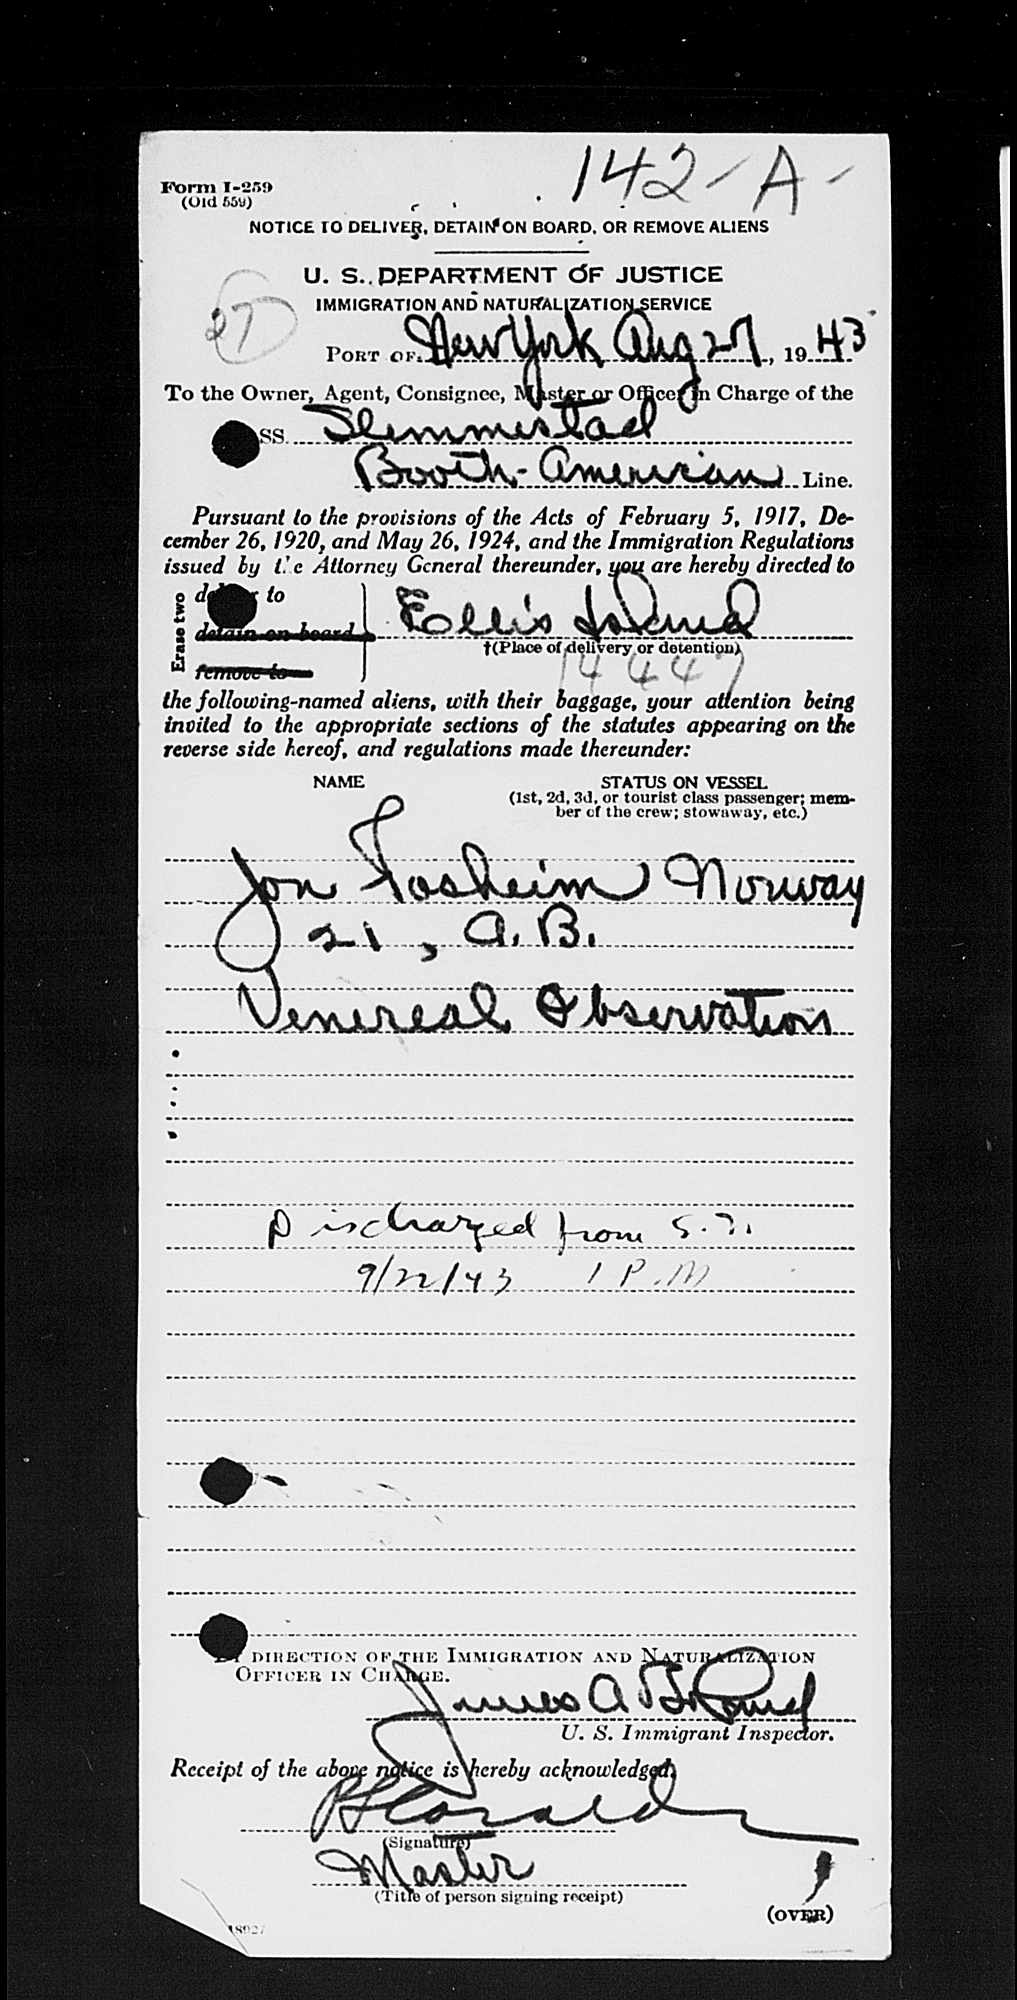 142-A-
Form I-259
(Old 559)
NOTICE TO DELIVER, DETAIN ON BOARD, OR REMOVE ALIENS
U. S. DEPARTMENT OF JUSTICE
IMMIGRATION AND NATURALIZATION SERVICE
27
PORT OF New York Aug 27, 1943
To the Owner, Agent, Consignee, Master or Officer in Charge of the
SS. Slemmestad
Booth-American Line.
Pursuant to the provisions of the Acts of February 5, 1917, De-
cember 26, 1920, and May 26, 1924, and the Immigration Regulations
issued by the Attorney General thereunder, you are hereby directed to
Erase two
deliver to
detain on board
remove to
Ellis Island
†(Place of delivery or detention)
14447
the following-named aliens, with their baggage, your attention being
invited to the appropriate sections of the statutes appearing on the
reverse side hereof, and regulations made thereunder:
NAME STATUS ON VESSEL
(1st, 2d, 3d, or tourist class passenger; mem-
ber of the crew; stowaway, etc.)
Jon Fosheim Norway
21, A.B.
Venereal Observation
Discharged from S.I.
9/22/43 1 P.M
BY DIRECTION OF THE IMMIGRATION AND NATURALIZATION
OFFICER IN CHARGE.
James A
U. S. Immigrant Inspector.
Receipt of the above notice is hereby acknowledged.
(Signature)
Master
(Title of person signing receipt)
(OVER)
18927